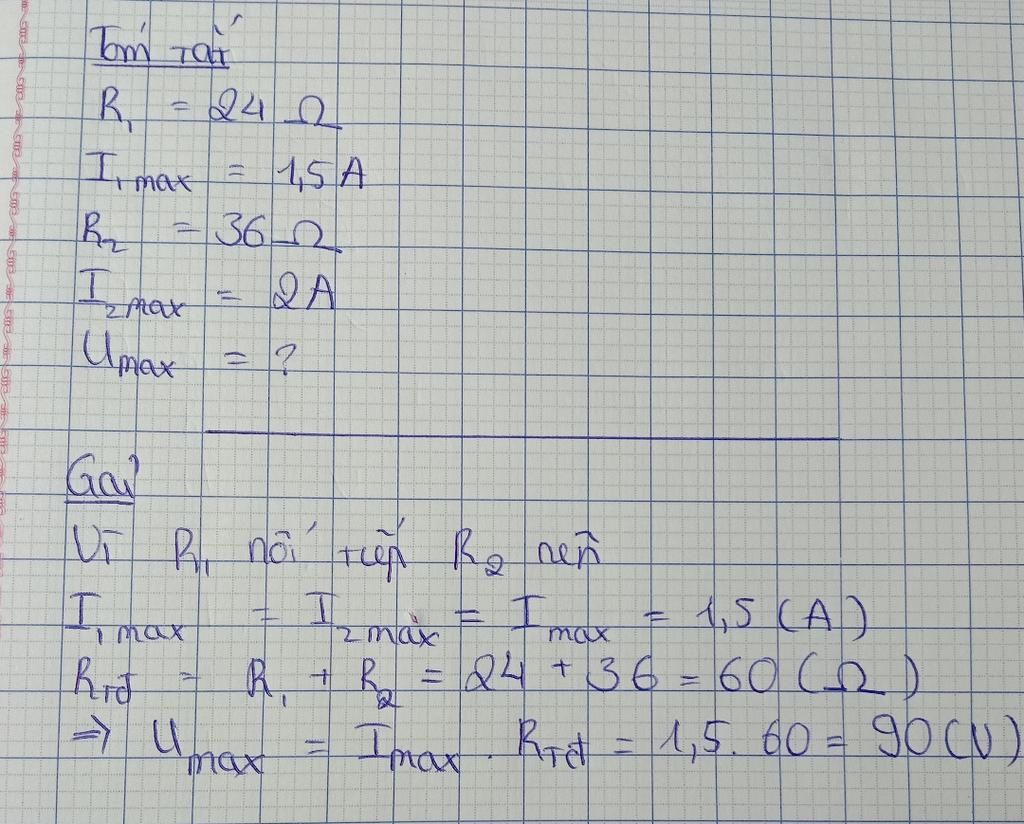 Tóm tắt
R₁ = 24 Ω
I₁max = 1,5 A
R₂ = 36 Ω
I₂max = 2A
Umax = ?
Giải
Vì R₁ nối tiếp R₂ nên
I₁max = I₂max = Imax = 1,5 (A)
Rtđ = R₁ + R₂ = 24 + 36 = 60 (Ω)
=> Umax = Imax . Rtđ = 1,5 . 60 = 90 (V)